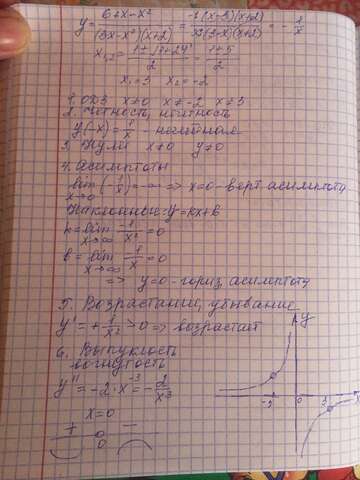 y = (6+x-x²)/((3x-x²)(x+2)) = (-1(x-3)(x+2))/(x(3-x)(x+2)) = -1/x
x₁,₂ = (1±√1+24)/2 = (1±5)/2
x₁=3 x₂=-2
1. ОДЗ x≠0 x≠-2 x≠3
2. Четность, нечётность
y(-x) = 1/x - нечетная
3. Нули x≠0 y≠0
4. Асимптоты
lim x→0 (-1/x) = -∞ => x=0 - верт асимптота
Наклонные: y=kx+b
k = lim x→∞ -1/x² = 0
b = lim x→∞ -1/x = 0
=> y=0 - гориз. асимптота
5. Возрастание, убывание
y' = +1/x² > 0 => возрастает
6. Выпуклость
вогнутость
y'' = -2·x⁻³ = -2/x³
x=0
+ −
0
y
-2 0 3 x